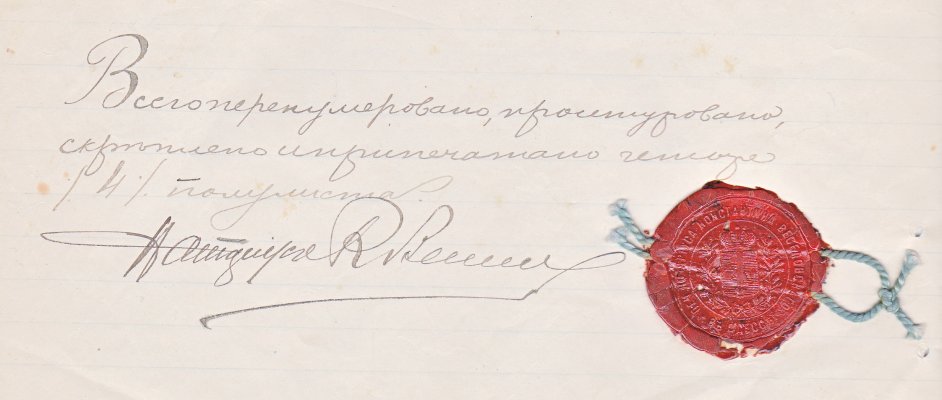 Всего перенумеровано, прошнуровано,
скрѣплено и припечатано четыре
/4/. полулиста.
Нотаріусъ К.
КОНСТАНТИНА